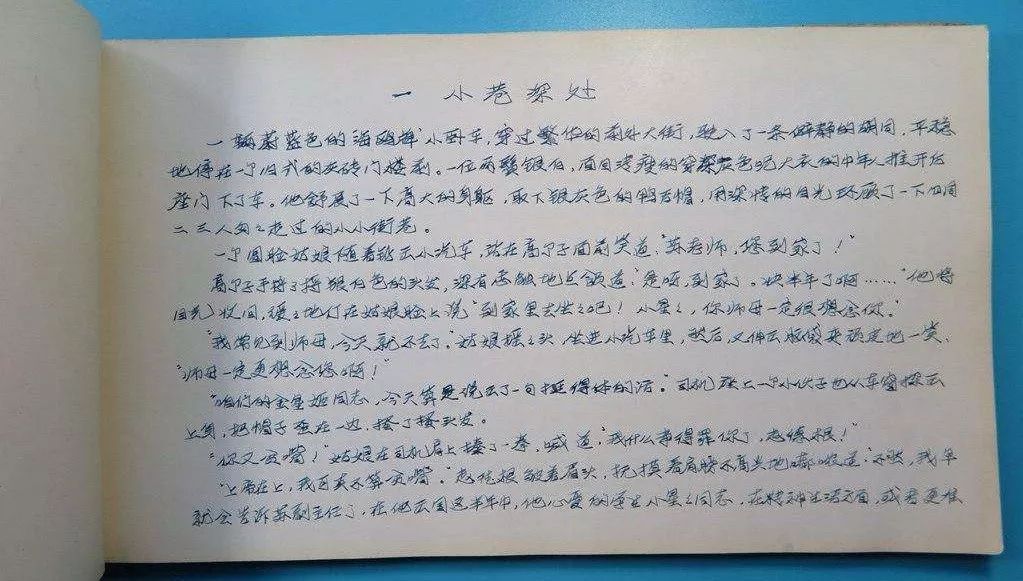 一 小巷深处
一辆蔚蓝色的海鸥牌小卧车,穿过繁华的前外大街,驶入了一条僻静的胡同,平稳
地停在一个旧式的灰砖门楼前。一位两鬓银白,面目清瘦的穿深灰色呢大衣的中年人推开后
座门下了车。他舒展了一下高大的身躯,取下银灰色的鸭舌帽,用深情的目光环顾了一下四周
二三人匆匆走过的小小街巷。
一个圆脸姑娘随着跳出小汽车,站在高个子面前笑道:“苏老师,您到家了!”
高个子捋了捋银白色的头发,深有感触地点领道:“是呀,到家了。快半年了啊……”他将
目光收回,缓缓地停在姑娘脸上说:“到家里去坐坐吧!小星星,你师母一定很想念你。”
“我常见到师母,今天就不去了。”姑娘摇摇头,坐进小汽车里,然后,又伸出脑袋来顽皮地一笑,
“师母一定更想念您啊!”
“咱们的金星姬同志,今天算是说出了一句挺得体的话。”司机座上一个小伙子也从车窗探出
上身,把帽子歪在一边,搔了搔头发。
“你又贫嘴!”姑娘在司机肩上捶了一拳,喊道:“我什么事得罪你了,
“上帝在上,我可真不算贫嘴。”皱着眉头,抚摸着肩膀不高兴地嘟哝道:“不然,我早
就会告诉苏副主任了,在他出国这半年中,他心爱的学生小星星同志,在精神生活方面,或者更准